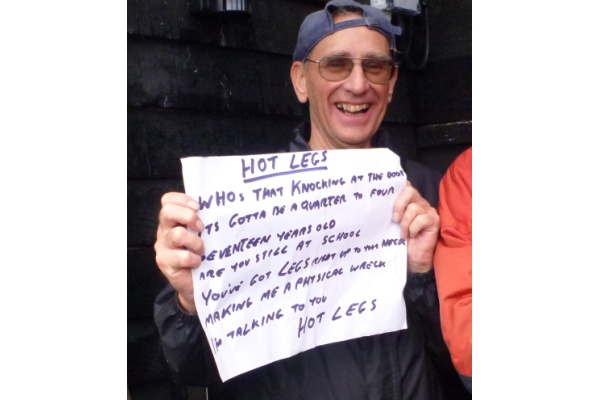 HOT LEGS
WHOS THAT KNOCKING AT THE DOOR
ITS GOTTA BE A QUARTER TO FOUR
SEVENTEEN YEARS OLD
ARE YOU STILL AT SCHOOL
YOU'VE GOT LEGS RIGHT UP TO YOUR NECK
MAKING ME A PHYSICAL WRECK
I'M TALKING TO YOU
HOT LEGS